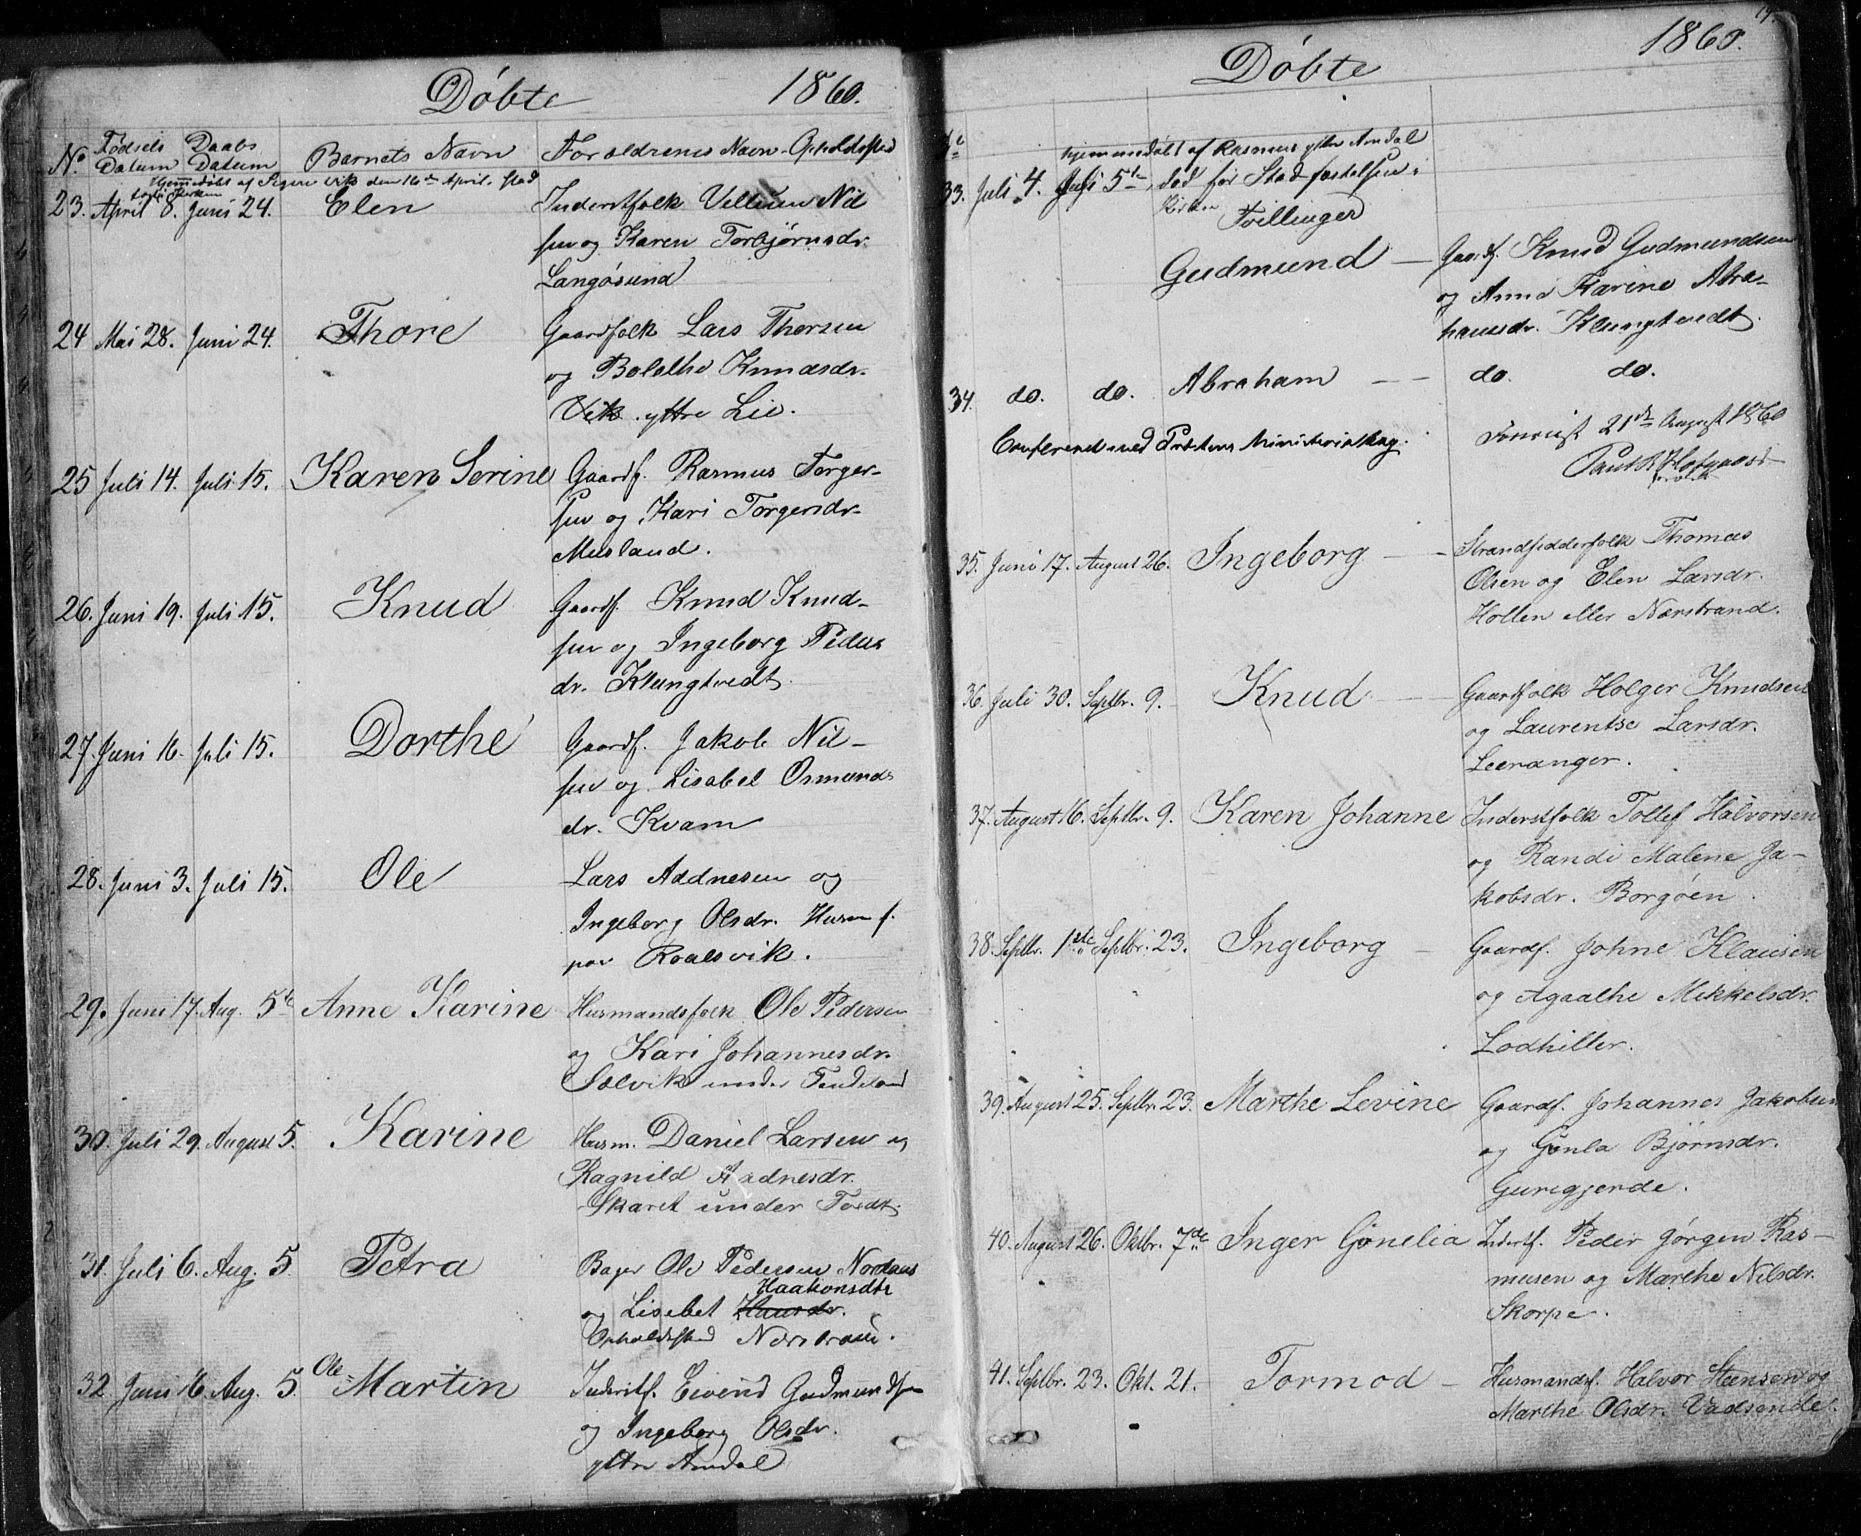 Döbte 1860.
No. Fødsels Datum Daabs Datum Barnets Navn Forældrenes Navn Opholdssted
Hjemmedøbt af Vik den 16de April. Stad
23. April 8. Juni 24. Elen Inderstfolk Villum Nil
sen og Karen Torbjørnsdr.
Langøsund
24 Mai 28. Juni 24. Thore Gaardfolk Lars Thorsen
og Bolethe Knudsdr.
Vik. yttre Lie.
25 Juli 14. Juli 15. Karen Serine Gaardf. Rasmus Torger-
sen og Kari Torgersdr.
Mesland.
26. Juni 19. Juli 15. Knud Gaardf. Knud Knud-
sen og Ingeborg Peders
dr. Klungtvedt.
27. Juni 16. Juli 15. Dorthe Gaardf. Jakob Nil-
sen og Lisabet Osmunds
dr. Kvam
28. Juni 3. Juli 15. Ole Lars Addnesen og
Ingeborg Olsdr. Husm f.
paa Roalsvik.
29. Juni 17. Aug. 5te Anne Karine Husmandsfolk Ole Pedersen
og Kari Johannesdr.
Sølvik under Tendeland
30. Juli 29. August 5. Karine Husm. Daniel Larsen og
Ragnild Aadnesdr.
Skaret under Tvedt.
31. Juli 6. Aug. 5 Petra Bager Ole Pedersen Nordaas
Haakonsdtr
og Lisebet Hansdr.
Opholdssted Nærstrand.
32 Juni 16 Aug. 5. Ole Martin Inderstf. Eivind Gudmundsen
og Ingeborg Olsdr.
yttre Amdal
Döbte 1860.
hjemmedøbt af Rasmus ytter Amdal
33. Juli 4. Juli 5te, død før Stadfæstelsen i
Kirken Tvillinger
Gudmund — Gaardf. Knud Gudmundsen
og Anna Karine Abra-
hamsdr. Klungtvedt.
34. do. do. Abraham — — do. do.
Confereret med Præstens Ministerialbog. 21de August 1860
35. Juni 17. August 26. Ingeborg — Strandsidderfolk Thomas
Olsen og Elen Larsdr.
Hollen eller Nærstrand.
36. Juli 30. Septbr. 9. Knud — Gaardfolk Holger Knudsen
og Laurentse Larsdr.
Leeranger.
37. August 16. Septbr. 9. Karen Johanne Inderstfolk Tollef Halvorsen
og Randi Malene Ja-
kobsdr. Borgøen.
38. Septbr. 1ste Septbr. 23. Ingeborg — Gaardf. Johne Klausen
og Agaathe Mikkelsdr.
Lodhiller.
39. August 25. Septbr. 23. Marthe Levine Gaardf. Johannes Jakobsen
og Gunla Bjørnsdr.
Gurigjerde.
40. August 26. Oktbr. 7de Inger Gonelia Inderstf. Peder Jørgen Ras-
musen og Marthe Nilsdr.
Skorpe.
41. Septbr. 23. Okt. 21. Tormod — Husmandsf. Halvor Stensen og
Marthe Olsdr. Vadsende.